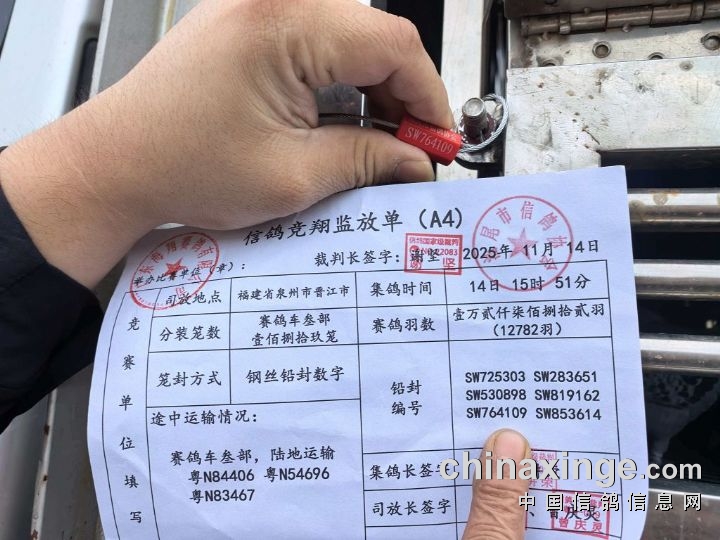 SW764109
信鸽竞翔监放单（A4）
举办比赛单位（章）：
裁判长签字：
2025年 11月 14日
竞赛单位填写
司放地点
福建省泉州市晋江市
集鸽时间
14日 15时 51分
分装笼数
赛鸽车叁部
壹佰捌拾玖笼
赛鸽羽数
壹万贰仟柒佰捌拾贰羽
（12782羽）
笼封方式
钢丝铅封数字
铅封
编号
SW725303 SW283651
SW530898 SW819162
SW764109 SW853614
途中运输情况：
赛鸽车叁部，陆地运输
粤N84406 粤N54696
粤N83467
集鸽长签字
司放长签字
曾庆灵
chinaxinge.com
中国信鸽信息网